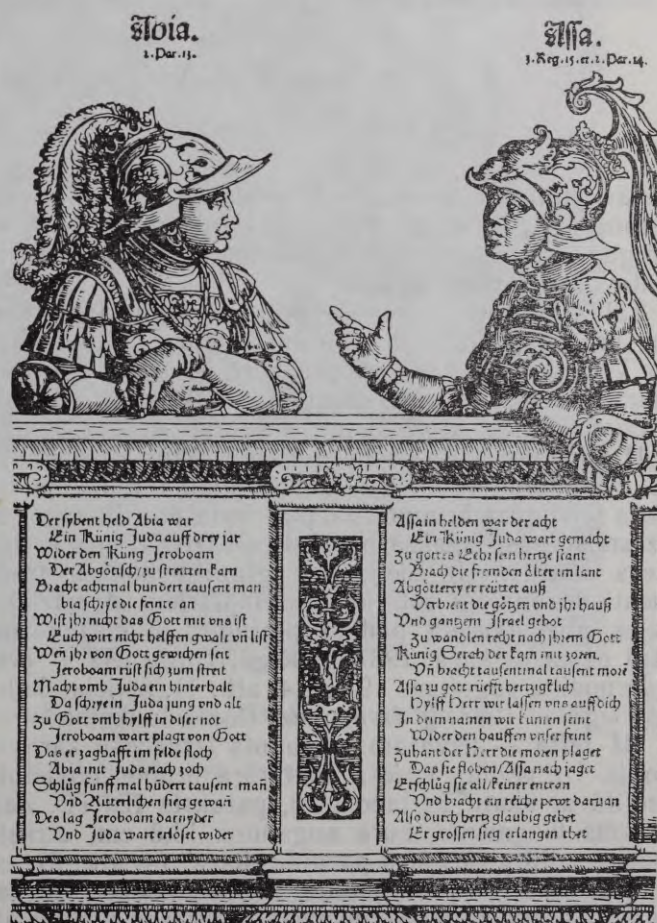 Abia.
2. Par. 13.
Der sybent held Abia war
Ein Künig Juda auff drey jar
Wider den Küng Jeroboam
Der Abgötisch/zu streitten kam
Bracht achtmal hundert tausent man
bia schrye die feinte an
Wist jhr nicht das Gott mit vns ist
Euch wirt nicht helffen gwalt vñ list
Weñ jhr von Gott gewichen seit
Jeroboam rüst sich zum streit
Macht vmb Juda ein hinterhalt
Da schrye in Juda jung vnd alt
Zu Gott vmb hylff in diser not
Jeroboam wart plagt von Gott
Das er zaghafft im felde floch
Abia mit Juda nach zoch
Schlüg fünff mal hüdert tausent mañ
Vnd Ritterlichen sieg gewañ
Des lag Jeroboam darnyder
Vnd Juda wart erlöset wider
Assa.
3. Reg. 15. et. 2. Par. 14.
Assa in helden war der acht
Ein Künig Juda wart gemacht
Zu gottes Eehr sein hertze stant
Brach die fremden älter im lant
Abgötterey er reüttet auß
Verbrent die götzen vnd jhr hauß
Vnd gantzem Jsrael gebot
Zu wandlen recht nach jhrem Gott
Künig Serah der kam mit zoren,
Vñ bracht tausentmal tausent more
Assa zu gott rüefft hertzigklich
Hylff Herr wir lassen vns auff dich
Jn deim namen wir kumen seint
Wider den hauffen vnser feint
Zuhant der Herr die moren plaget
Das sie flohen/Assa nach jaget
Erschlüg sie all/keiner entran
Vnd bracht ein reiche pewt daruan
Also durch hertz glaubig gebet
Er grossen sieg erlangen thet